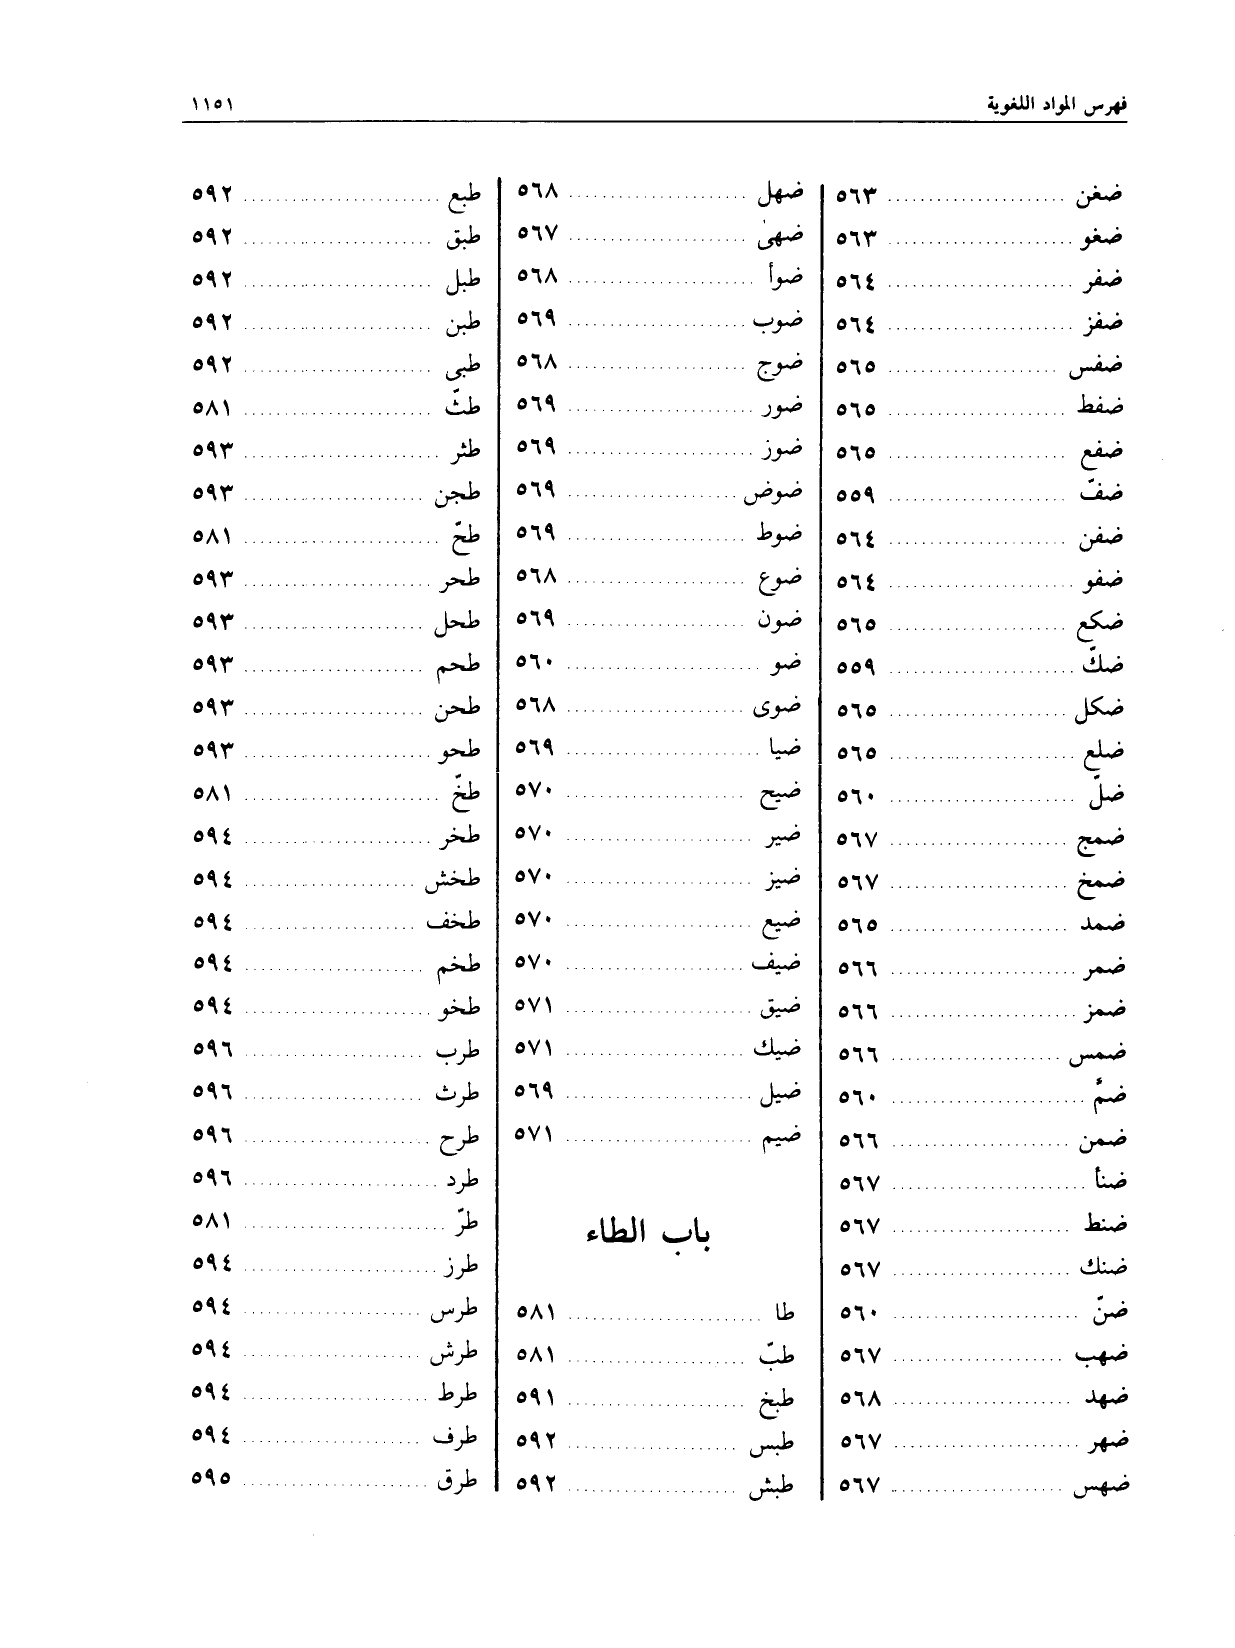 فهرس المواد اللغوية ١١٥١
ضغن ٥٦٣
ضغو ٥٦٣
ضفر ٥٦٤
ضفز ٥٦٤
ضفس ٥٦٥
ضفط ٥٦٥
ضفع ٥٦٥
ضفّ ٥٥٩
ضفن ٥٦٤
ضفو ٥٦٤
ضكع ٥٦٥
ضكّ ٥٥٩
ضكل ٥٦٥
ضلع ٥٦٥
ضلّ ٥٦٠
ضمج ٥٦٧
ضمخ ٥٦٧
ضمد ٥٦٥
ضمر ٥٦٦
ضمز ٥٦٦
ضمس ٥٦٦
ضمَّ ٥٦٠
ضمن ٥٦٦
ضنأ ٥٦٧
ضنط ٥٦٧
ضنك ٥٦٧
ضنّ ٥٦٠
ضهب ٥٦٧
ضهد ٥٦٨
ضهر ٥٦٧
ضهس ٥٦٧
ضهل ٥٦٨
ضهى ٥٦٧
ضوأ ٥٦٨
ضوب ٥٦٩
ضوج ٥٦٨
ضور ٥٦٩
ضوز ٥٦٩
ضوض ٥٦٩
ضوط ٥٦٩
ضوع ٥٦٨
ضون ٥٦٩
ضو ٥٦٠
ضوى ٥٦٨
ضيا ٥٦٩
ضيح ٥٧٠
ضير ٥٧٠
ضيز ٥٧٠
ضيع ٥٧٠
ضيف ٥٧٠
ضيق ٥٧١
ضيك ٥٧١
ضيل ٥٦٩
ضيم ٥٧١
باب الطاء
طا ٥٨١
طبّ ٥٨١
طبخ ٥٩١
طبس ٥٩٢
طبش ٥٩٢
طبع ٥٩٢
طبق ٥٩٢
طبل ٥٩٢
طبن ٥٩٢
طبى ٥٩٢
طثّ ٥٨١
طثر ٥٩٣
طجن ٥٩٣
طحّ ٥٨١
طحر ٥٩٣
طحل ٥٩٣
طحم ٥٩٣
طحن ٥٩٣
طحو ٥٩٣
طخّ ٥٨١
طخر ٥٩٤
طخش ٥٩٤
طخف ٥٩٤
طخم ٥٩٤
طخو ٥٩٤
طرب ٥٩٦
طرث ٥٩٦
طرح ٥٩٦
طرد ٥٩٦
طرّ ٥٨١
طرز ٥٩٤
طرس ٥٩٤
طرش ٥٩٤
طرط ٥٩٤
طرف ٥٩٤
طرق ٥٩٥